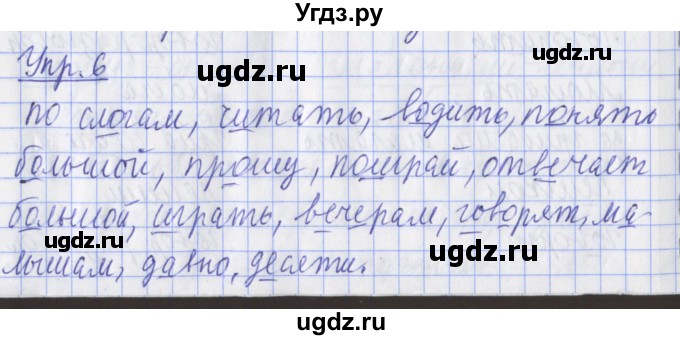 Угдз.ру
Упр. 6
ugdz.ru ugdz.ru
по слогам, читать, водить, понять
большой, прошу, поиграй, отвечает
ugdz.ru
большой, играть, вечерам, говорят, ма-
ugdz.ru ugdz.ru
лышам, давно, десяти.
ugdz.ru